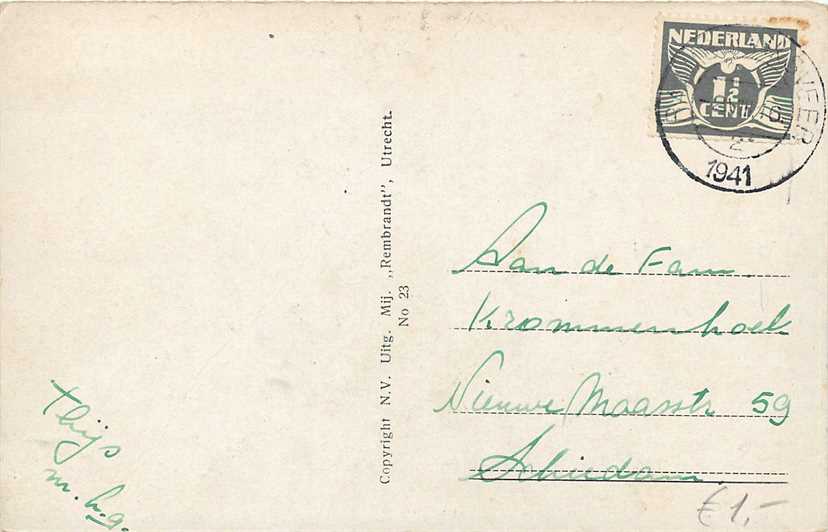 NEDERLAND
1½
CENT
1941
Copyright N.V. Uitg. Mij. „Rembrandt”, Utrecht.
No 23
Aan de Fam.
Krommenhoek
Nieuwe Maasstr 59
Schiedam.
Thijs
m. h. g.
€1,-